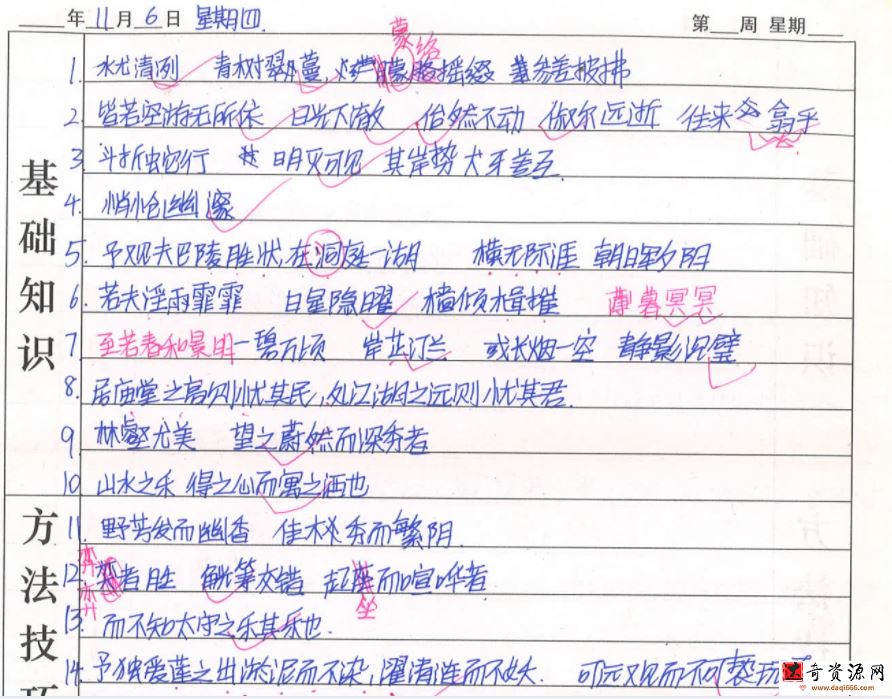 年 11月 6日 星期四 第 周 星期
蒙络
1. 水尤清冽 青树翠蔓 蒙络摇缀 参差披拂
2 皆若空游无所依 日光下澈 佁然不动 俶尔远逝 往来翕乎
3 斗折蛇行 明灭可见 其岸势犬牙差互.
4. 悄怆幽邃
5. 予观夫巴陵胜状,在洞庭一湖 横无际涯 朝晖夕阴
6. 若夫淫雨霏霏 日星隐曜 樯倾楫摧 薄暮冥冥
7 至若春和景明 一碧万顷 岸芷汀兰 或长烟一空 静影沉璧
8. 居庙堂之高则忧其民,处江湖之远则忧其君.
9 林壑尤美 望之蔚然而深秀者
10 山水之乐 得之心而寓之酒也
11. 野芳发而幽香 佳木秀而繁阴.
弈
12. 者胜 觥筹交错 起座而喧哗者
弈 坐
13. 而不知太守之乐其乐也.
14. 予独爱莲之出淤泥而不染,濯清涟而不妖. 可远观而不可亵玩
基础知识
方法技巧
奇资源网
www.daqi666.com